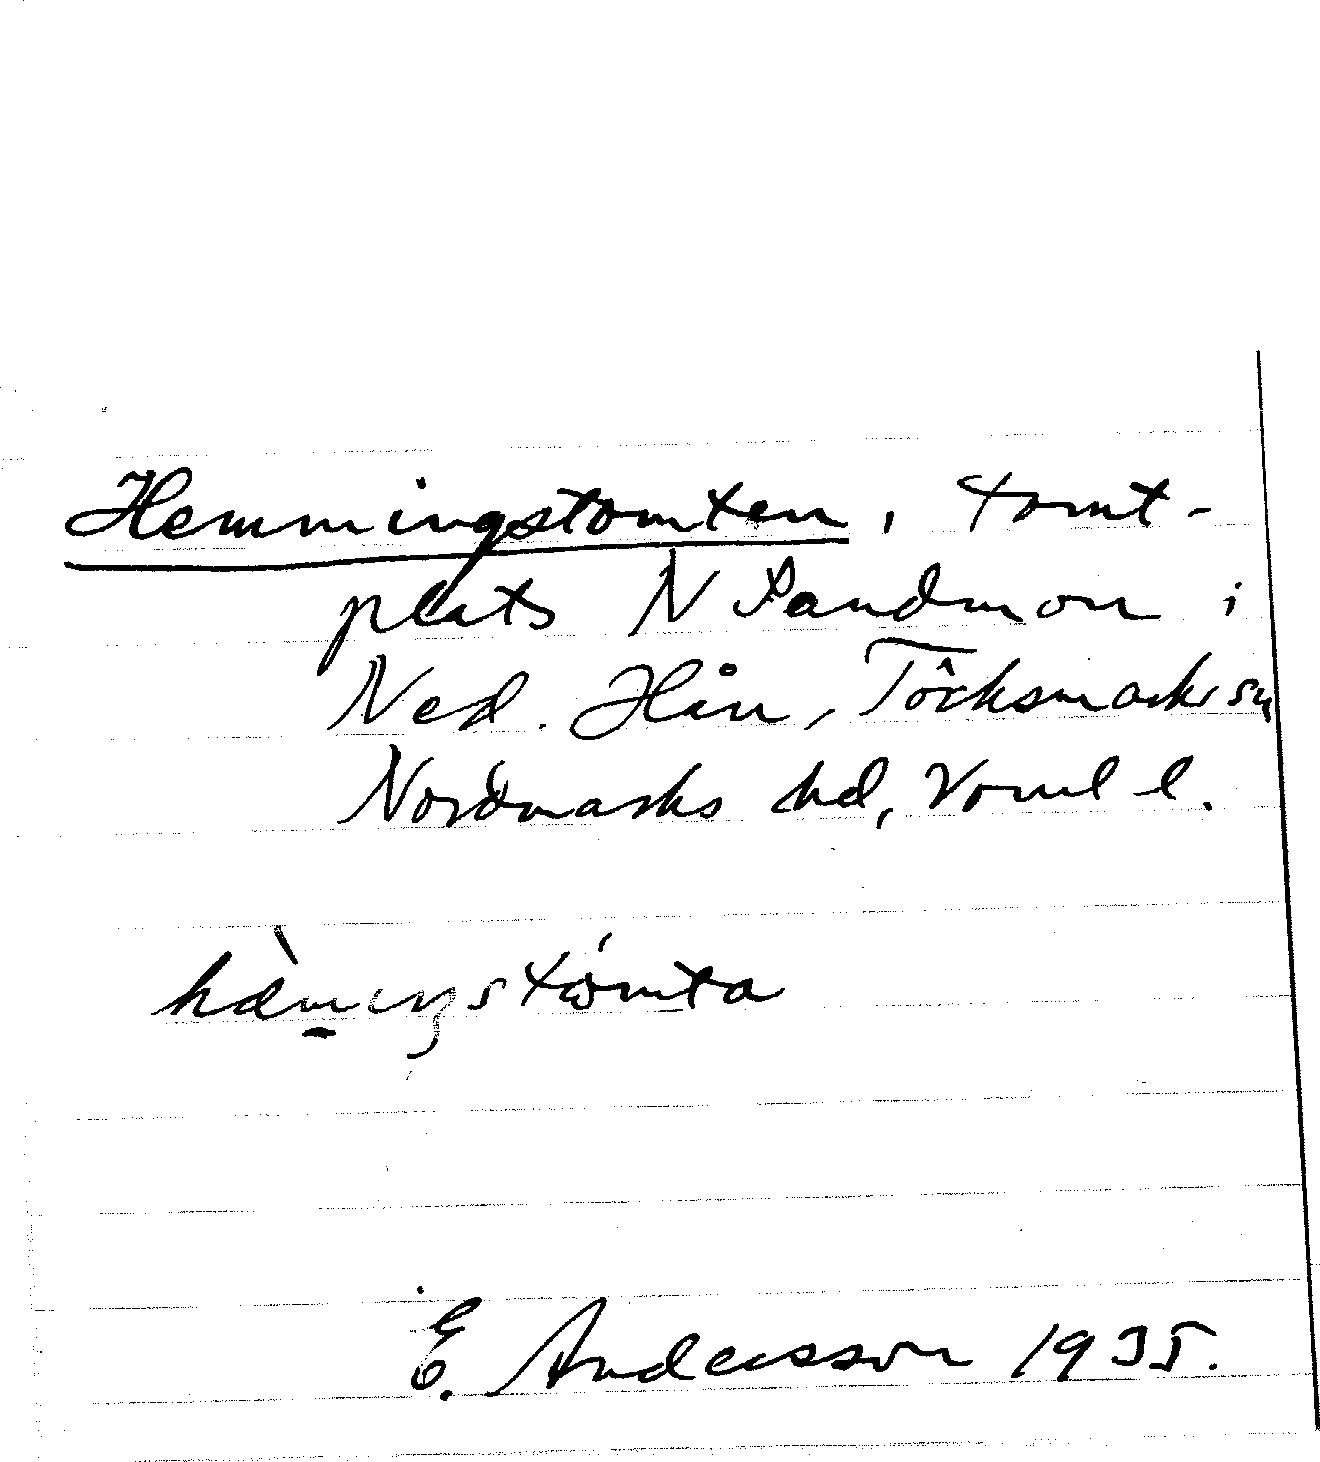 Hemmingstomten, tomt-
plats N Sandmon i
Ned. Hån, Töcksmarks sn
Nordmarks hd, Värml l.
hæ̀mıŋstómta
E. Andersson 1935.